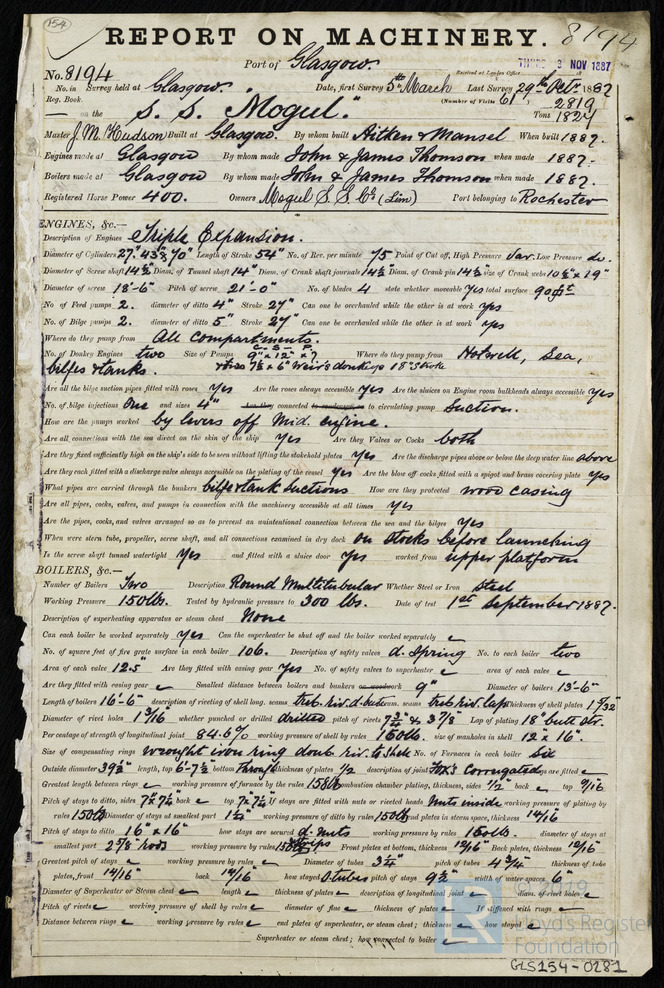 154
REPORT ON MACHINERY. 8194
Port of Glasgow.
No. 8194 Received at London Office THURS 3 NOV 1887
No. in Survey held at Glasgow. Date, first Survey 5th March Last Survey 29th Octr 1887
Reg. Book. (Number of Visits 61) 2819
on the S. S. "Mogul." Tons 1824
Master J. M. Hudson Built at Glasgow. By whom built Aitken & Mansel When built 1887.
Engines made at Glasgow By whom made John & James Thomson when made 1887.
Boilers made at Glasgow By whom made John & James Thomson when made 1887.
Registered Horse Power 400. Owners Mogul S. S. Co (Lim) Port belonging to Rochester
ENGINES, &c.—
Description of Engines Triple Expansion.
Diameter of Cylinders 27" 43" & 70" Length of Stroke 54" No. of Rev. per minute 75 Point of Cut off, High Pressure Var. Low Pressure do.
Diameter of Screw shaft 14½" Diam. of Tunnel shaft 14" Diam. of Crank shaft journals 14½" Diam. of Crank pin 14½" size of Crank webs 10½" x 19"
Diameter of screw 18'-6" Pitch of screw 21'-0" No. of blades 4 state whether moveable Yes total surface 90 ft
No. of Feed pumps 2. diameter of ditto 4" Stroke 27" Can one be overhauled while the other is at work Yes
No. of Bilge pumps 2. diameter of ditto 5" Stroke 27" Can one be overhauled while the other is at work Yes
Where do they pump from All compartments.
No. of Donkey Engines two Size of Pumps 9" x 12" x 7 Where do they pump from Hotwell, Sea,
bilges & tanks. 7½ x 6" Weir's donkeys 18" Stroke
Are all the bilge suction pipes fitted with roses Yes Are the roses always accessible Yes Are the sluices on Engine room bulkheads always accessible Yes
No. of bilge injections One and sizes 4" Are they connected to condenser, or to circulating pump Suction.
How are the pumps worked by levers off Mid. engine.
Are all connections with the sea direct on the skin of the ship Yes Are they Valves or Cocks both
Are they fixed sufficiently high on the ship's side to be seen without lifting the stokehold plates Yes Are the discharge pipes above or below the deep water line above
Are they each fitted with a discharge valve always accessible on the plating of the vessel Yes Are the blow off cocks fitted with a spigot and brass covering plate Yes
What pipes are carried through the bunkers bilge & tank Suctions How are they protected wood casing
Are all pipes, cocks, valves, and pumps in connection with the machinery accessible at all times Yes
Are the pipes, cocks, and valves arranged so as to prevent an unintentional connection between the sea and the bilges Yes
When were stern tube, propeller, screw shaft, and all connections examined in dry dock on stocks before launching
Is the screw shaft tunnel watertight Yes and fitted with a sluice door Yes worked from upper platform
BOILERS, &c.—
Number of Boilers Two Description Round Multitubular Whether Steel or Iron Steel
Working Pressure 150 lbs. Tested by hydraulic pressure to 300 lbs. Date of test 1st September 1887.
Description of superheating apparatus or steam chest None
Can each boiler be worked separately Yes Can the superheater be shut off and the boiler worked separately
No. of square feet of fire grate surface in each boiler 106. Description of safety valves d. Spring No. to each boiler two
Area of each valve 12.5" Are they fitted with easing gear Yes No. of safety valves to superheater area of each valve
Are they fitted with easing gear Smallest distance between boilers and bunkers or woodwork 9" Diameter of boilers 13'-6"
Length of boilers 16'-6" description of riveting of shell long. seams treb. riv. d. butt circum. seams treb. riv. lap Thickness of shell plates 1 9/32
Diameter of rivet holes 1 3/16 whether punched or drilled drilled pitch of rivets 7¾ & 3 7/8 Lap of plating 18" butt str.
Percentage of strength of longitudinal joint 84.6% working pressure of shell by rules 150 lbs. size of manholes in shell 12" x 16".
Size of compensating rings wrought iron ring doub. riv. to Shell No. of Furnaces in each boiler Six
Outside diameter 39½" length, top 6'-7½" bottom through thickness of plates ½ description of joint Fox's Corrugated rings are fitted
Greatest length between rings working pressure of furnace by the rules 158 lbs combustion chamber plating, thickness, sides ½" back top 9/16
Pitch of stays to ditto, sides 7½ x 7¼ back top 7½ x 7¼ If stays are fitted with nuts or riveted heads Nuts inside working pressure of plating by
rules 150 lbs Diameter of stays at smallest part 1¼" working pressure of ditto by rules 150 lbs end plates in steam space, thickness 14/16
Pitch of stays to ditto 16" x 16" how stays are secured d. Nuts working pressure by rules 150 lbs. diameter of stays at
smallest part 2 3/8 rods working pressure by rules 158 Front plates at bottom, thickness 12/16" Back plates, thickness 12/16"
Greatest pitch of stays working pressure by rules Diameter of tubes 3¼" pitch of tubes 4 3/16" thickness of tube
plates, front 14/16" back 12/16" how stayed S. tubes pitch of stays 9½" width of water spaces 6"
Diameter of Superheater or Steam chest length thickness of plates description of longitudinal joint diam. of rivet holes
Pitch of rivets working pressure of shell by rules diameter of flue thickness of plates If stiffened with rings
Distance between rings working pressure by rules end plates of superheater, or steam chest; thickness how stayed
Superheater or steam chest; how connected to boiler
© 2020
Lloyd's Register
Foundation
GLS154-0281